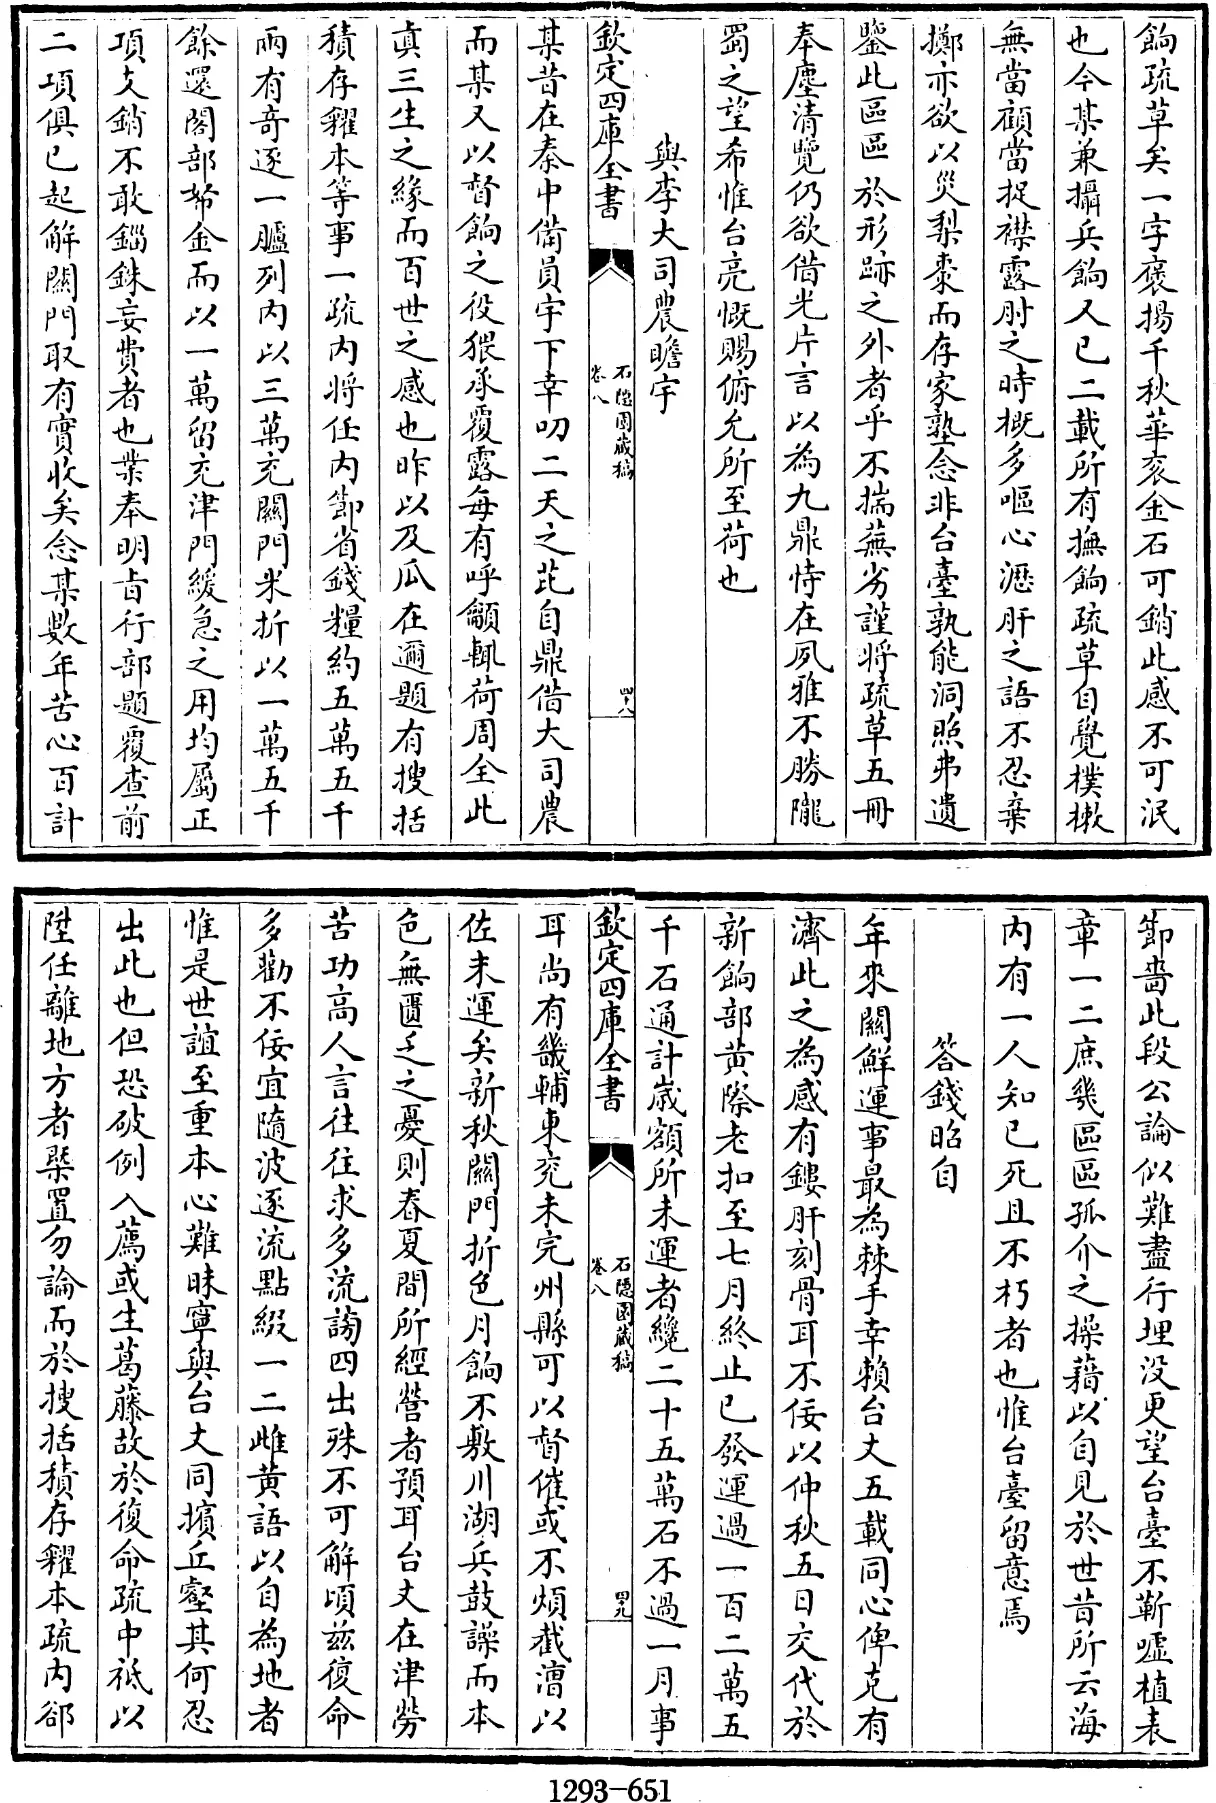 餉疏草矣一字褒揚千秋華衮金石可銷此感不可泯
也今某兼攝兵餉又已二載所有撫餉疏草自覺樸樕
無當顧當捉襟露肘之時概多嘔心瀝肝之語不忍棄
擲亦欲以災梨棗而存家塾念非台臺孰能洞照弗遺
鑒此區區於形跡之外者乎不揣蕪劣謹將疏草五冊
奉塵清覽仍欲借光片言以為九鼎恃在夙雅不勝隴
蜀之望希惟台亮慨賜俯允所至荷也
與李大司農瞻宇
欽定四庫全書
石隱園藏稿
卷八
四十八
某昔在秦中備員宇下幸叨二天之芘自鼎借大司農
而某又以督餉之役猥承覆露每有呼籲輒荷周全此
真三生之緣而百世之感也昨以及瓜在邇題有搜括
積存糴本等事一疏内將任内節省錢糧約五萬五千
兩有奇逐一臚列内以三萬充關門米折以一萬五千
餘還閣部帑金而以一萬留充津門緩急之用均屬正
項支銷不敢錙銖妄費者也業奉明旨行部題覆查前
二項俱已起解關門取有實收矣念某數年苦心百計
節嗇此段公論似難盡行埋没更望台臺不靳噓植表
章一二庶幾區區孤介之操藉以自見於世昔所云海
内有一人知已死且不朽者也惟台臺留意焉
答錢昭自
年來關鮮運事最為棘手幸賴台丈五載同心俾克有
濟此之為感有鏤肝刻骨耳不佞以仲秋五日交代於
新餉部黄際老扣至七月終止已發運過一百二萬五
千石通計歲額所未運者纔二十五萬石不過一月事
欽定四庫全書
石隱園藏稿
卷八
四十九
耳尚有畿輔東兖未完州縣可以督催或不煩截漕以
佐末運矣新秋關門折色月餉不敷川湖兵鼓譟而本
色無匱乏之憂則春夏間所經營者預耳台丈在津勞
苦功高人言往往求多流謗四出殊不可解頃兹復命
多勸不佞宜隨波逐流點綴一二雌黄語以自為地者
惟是世誼至重本心難昧寧與台丈同擯丘壑其何忍
出此也但恐破例入薦或生葛藤故於復命疏中祗以
陞任離地方者槩置勿論而於搜括積存糴本疏内卻
1293-651